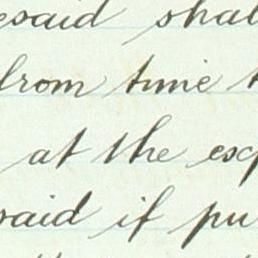 esaid shal
from time t
at the exp
said if pu